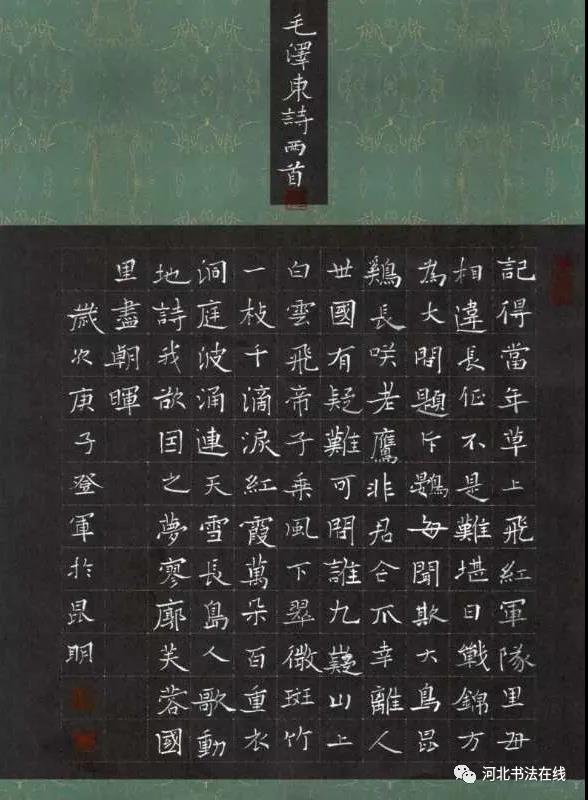 毛澤東詩兩首
記得當年草上飛紅軍隊里毋
相違長征不是難堪日戰錦方
為大問題斥鷃每聞欺大鳥昆
鷄長咲老鷹非君今不幸離人
世國有疑難可問誰九嶷山上
白雲飛帝子乘風下翠微斑竹
一枝千滴淚紅霞萬朵百重衣
洞庭波涌連天雪長島人歌動
地詩我欲因之夢寥廓芙蓉國
里盡朝暉
歲次庚子登軍於昆明
河北书法在线